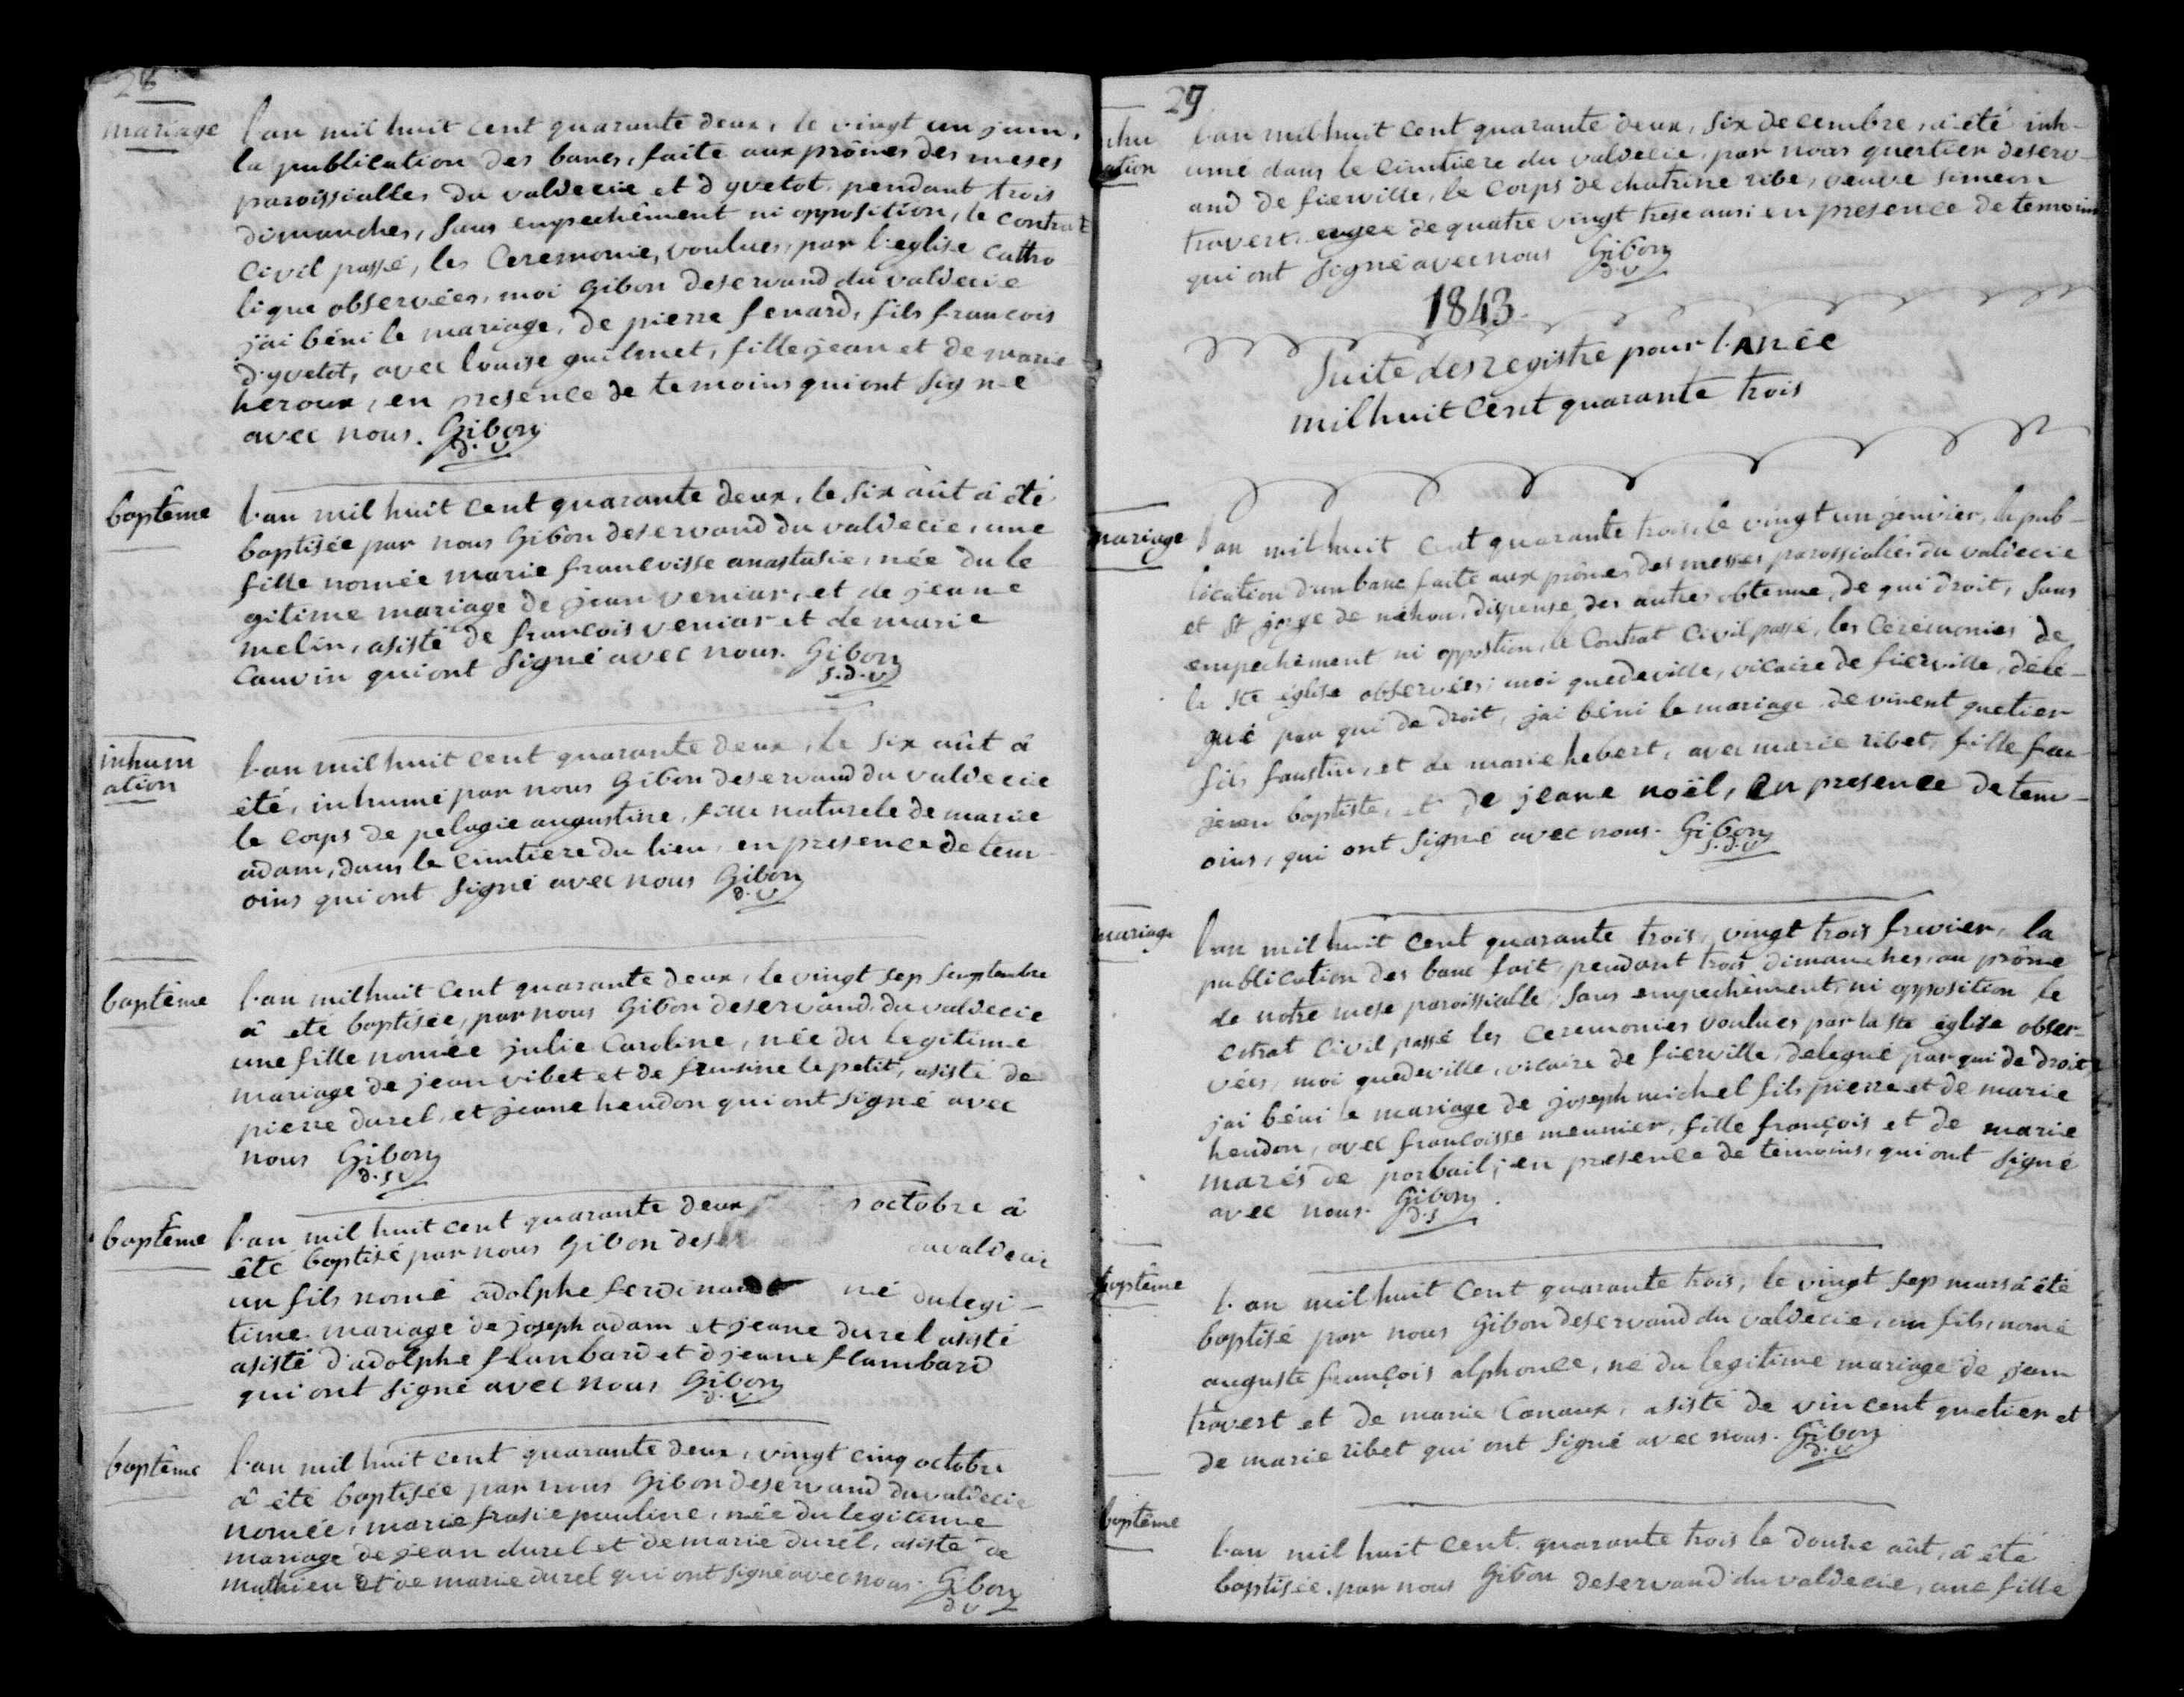 28
mariage
l'an mil huit cent quarante deux, le vingt un juin,
la publication des bancs, faite aux prônes des meses
paroissialles du valdecie et d yvetot, pendant trois
dimanches, sans empechêment ni opposition, le contrat
civil passé, les ceremonie, voulues, par l'eglise catho
lique observées, moi Gibon deservand du valdecie
j'ai béni le mariage, de pierre fenard, fils francois
d'yvetot, avec louise guilmet, fille jean et de marie
heroux, en presence de temoins qui ont signe
avec nous. Gibon
d. v
baptême
l'an mil huit cent quarante deux, le six aût â été
baptisée par nous Gibon deservand du valdecie, une
fille nomée marie francoisse anastasie, née du le
gitime mariage de jean veniar, et de jeane
melin, asisté de francois veniar et de marie
cauvin qui ont signé avec nous. Gibon
s.d.v
inhum
ation
l'an mil huit cent quarante deux, le six aût â
été, inhumé par nous Gibon deservand du valdecie
le corps de pelagie augustine, fille naturele de marie
adam, dans le cimtiere du lieu, en presence de tem
oins qui ont signé avec nous Gibon
d.v
baptême
l'an mil huit cent quarante deux, le vingt sep septembre
â eté baptisée, par nous Gibon deservand du valdecie
une fille nomée julie Caroline, née du legitime
mariage de jean vibet et de le petit, asisté de
pierre durel, et jeane heudon qui ont signé avec
nous Gibon
d.s v
baptême
l'an mil huit cent quarante deux octobre â
êté baptisé par nous Gibon des valdecie
un fils nomé adolphe ferdinand né du legi-
time mariage de joseph adam et jeane durel asisté
asisté d'adolphe flambard et d jeane flambard
qui ont signé avec nous Gibon
d.v
baptême
l'an mil huit cent quarante deux, vingt cinq octobre
â êté baptisée par nous Gibon deservand du valdecie
nomée, marie frasie pauline, née du legitime
mariage de jean durel et de marie durel, asisté de
mathieu et de marie durel qui ont signé avec nous. Gibon
d v
29
inhu
ation
l'an mil huit cent quarante deux, six decembre, a été inh-
umé dans le cimtiere du valdecie, par nous quertier deserv-
and de fierville, le corps de chatrine ribe, veuve simeon
travert, de quatre vingt trese ans en presence de temoins
qui ont signé avec nous Gibon
d.v
1843
Suite des registre pour l'Anée
mil huit cent quarante trois
mariage
l'an mil huit cent quarante trois, le vingt un jenvier, la pub-
lication d'un banc faite aux prônes des messes paroissiales du valdecie
et st jorge de néhou, dispense des autres obtenue, de qui droit, sans
empechêment ni oppostion, le contrat civil passé, les cérémonies de
la ste église observées, moi quedeville, vicaire de fierville, délé-
gué par qui de droit, jai béni le mariage de vincent quetier
fils faustin, et de marie hebert, avec marie ribet, fille feu
jean baptiste, et de jeane noël, en presence de tem-
oins, qui ont signé avec nous. Gibon
s.d.v
mariage
l'an mil huit cent quarante trois, vingt trois frevier, la
publication des banc fait, pendant trois dimanches, au prône
de notre mese paroissialle, sans empechêment, ni opposition le
cntrat civil passé les ceremonies voulues par la ste église obser-
vées, moi quedeville, vicaire de fierville, delegué par qui de droit
jai béni le mariage de joseph michel fils pierre et de marie
heudon, avec francoisse meunier, fille françois et de marie
marés de porbail, en presence de témoins, qui ont signé
avec nous. Gibon
d.s
baptême
l'an mil huit cent quarante trois, le vingt sep mars â été
baptisé par nous Gibon deservand du valdecie, un fils, nomé
auguste françois alphonce, né du legitime mariage de jean
travert et de marie Canaux, asisté de vincent quetier et
de marie ribet qui ont signé avec nous. Gibon
d.v
baptême
l'an mil huit cent quarante trois le douze aût, â été
baptisée par nous Gibon deservand du valdecie, une fille